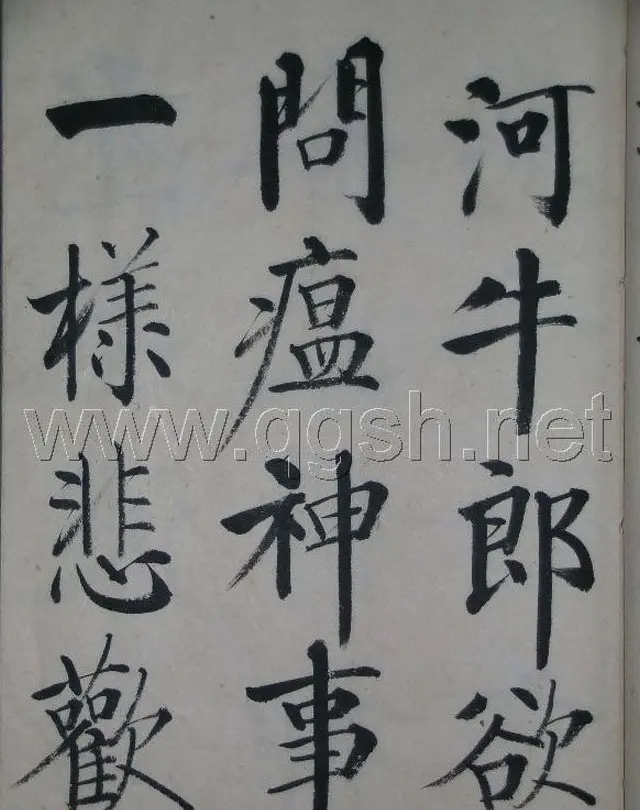 河牛郎欲
問瘟神事
一樣悲歡
www.qgsh.net